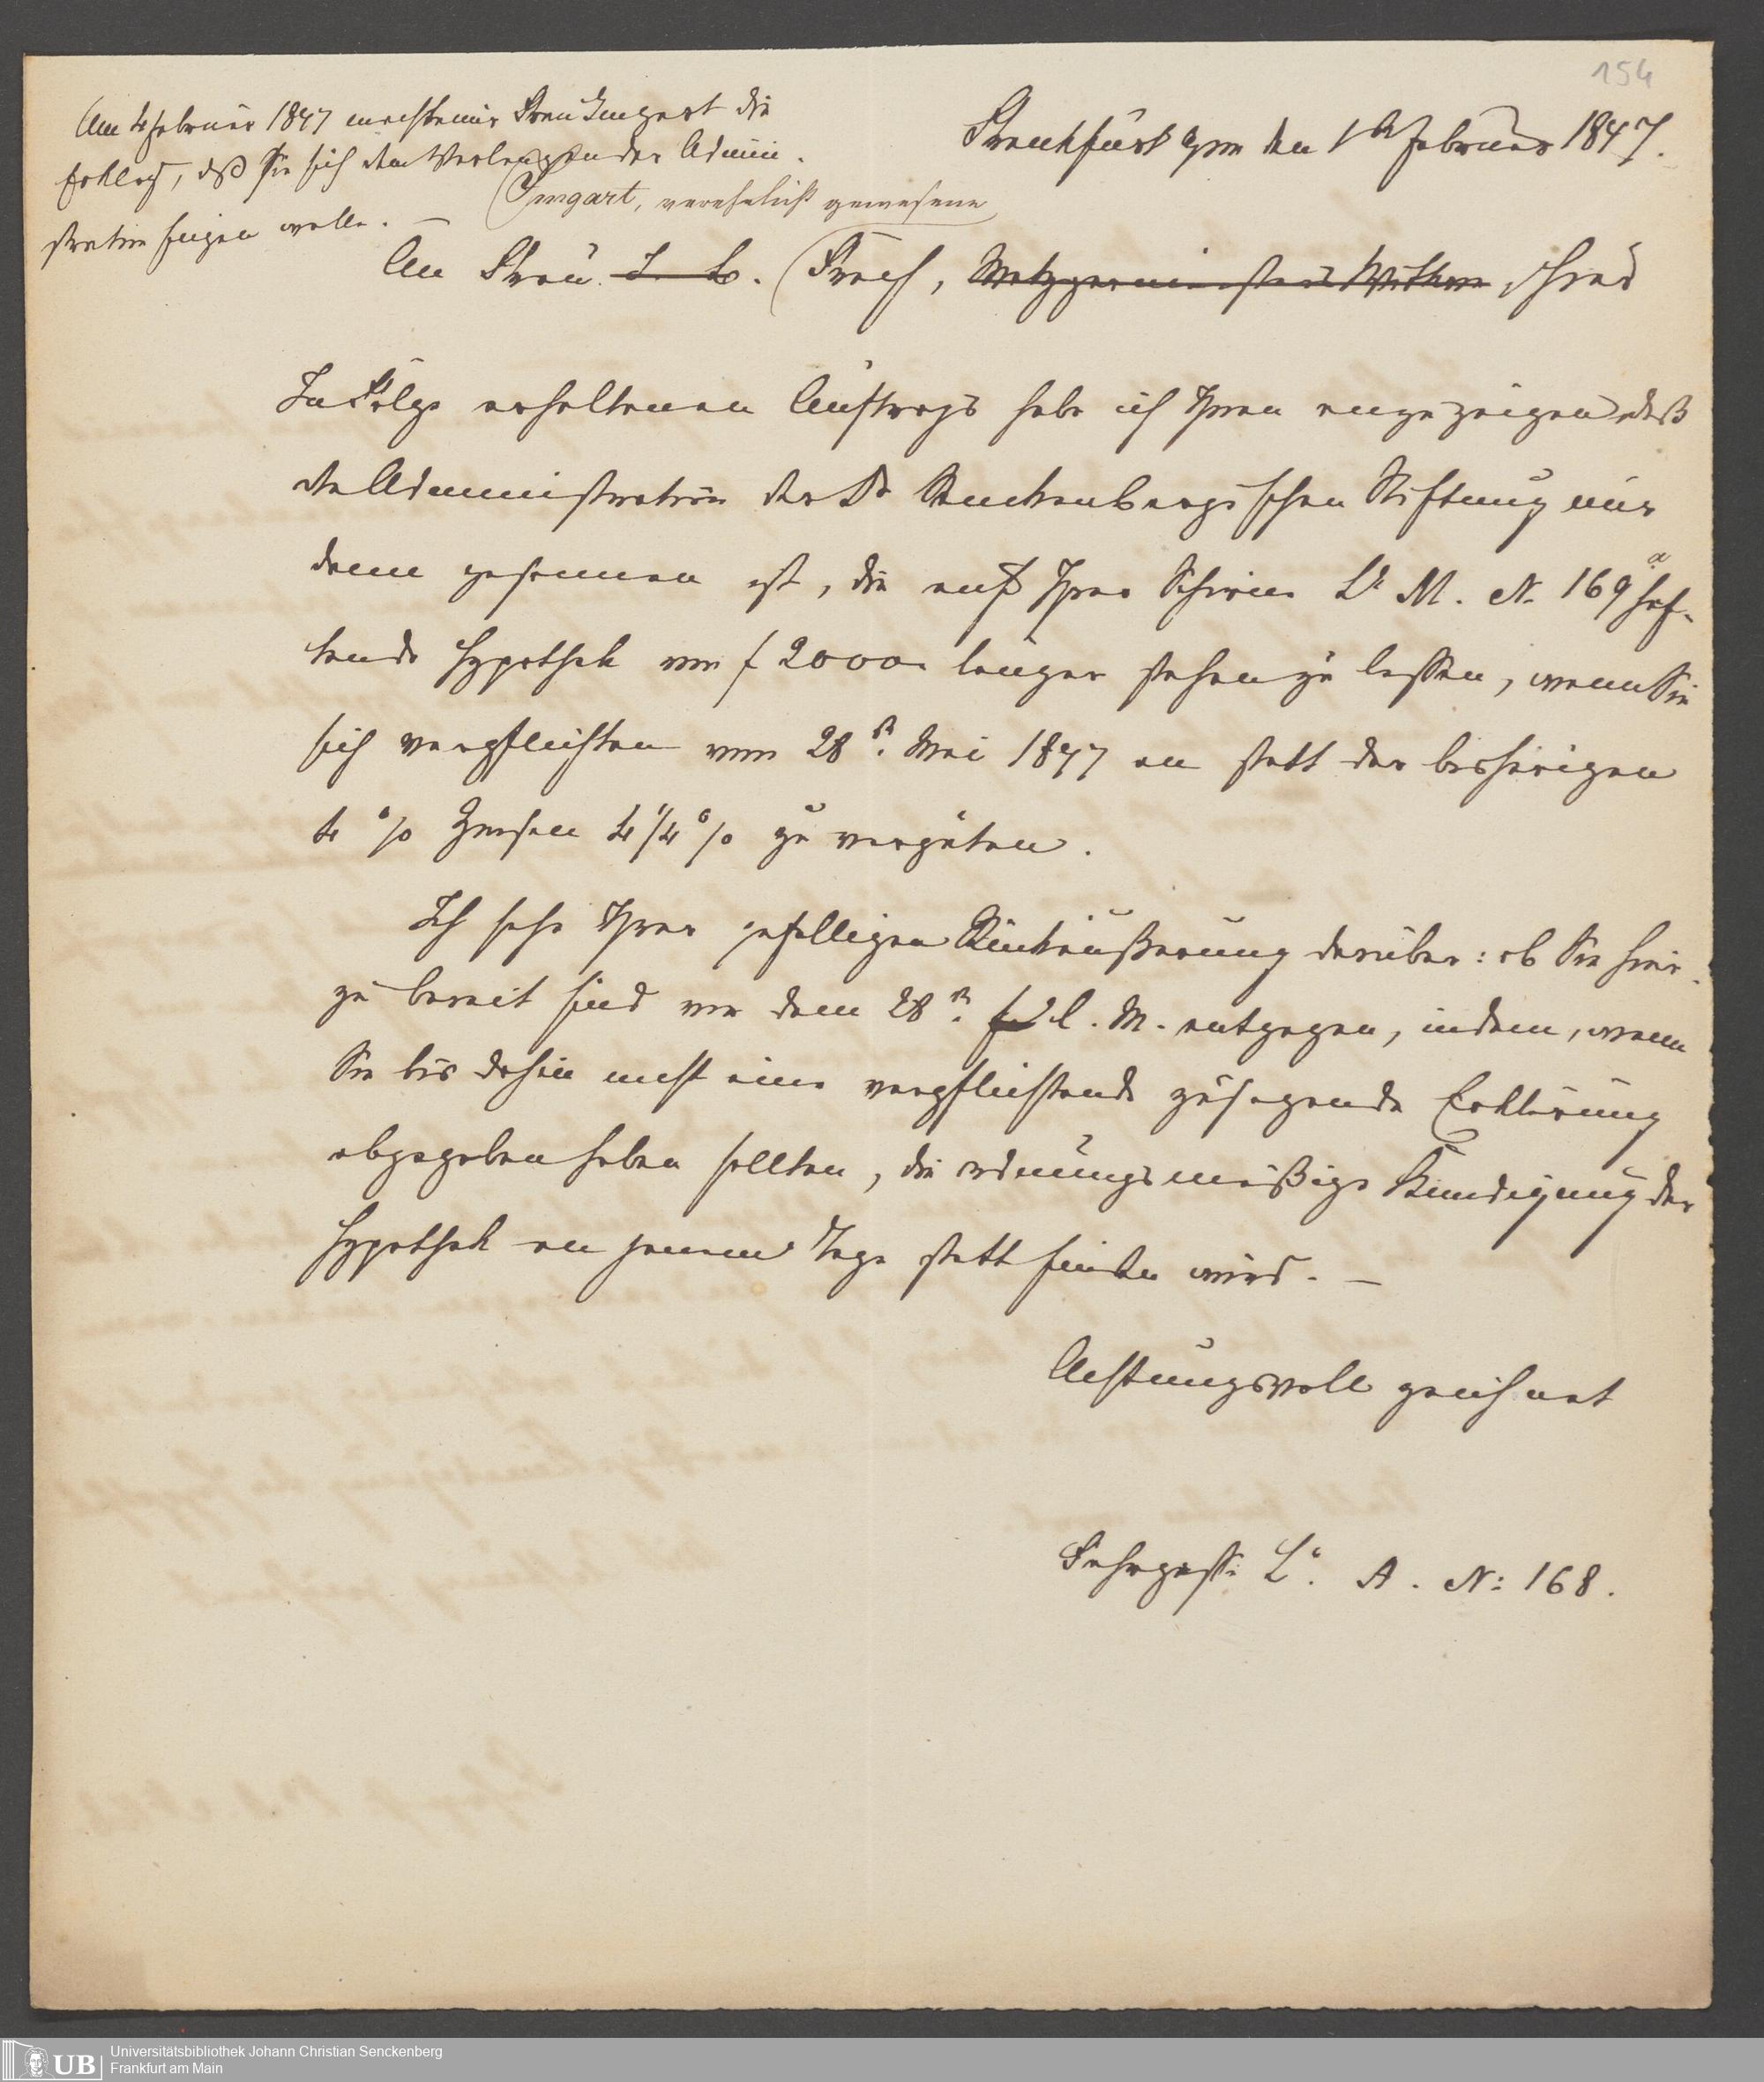 154
Am 4 Februar 1847 machte mir Frau Imgart die
Erklag, daß sie sich dem Verlangen der Admini-
stration fügen wolle. —
Frankfurt a/m den 1ten Februar 1847.
Imgart, verehelicht gewesene
An Frau J. L. Fresch, Metzgermeisters Wittwe, hier
In Folge erhaltenen Auftrags habe ich Ihnen anzuzeigen, daß
die Administration der Dr Senckenbergischen Stiftung nur
dann gesonnen ist, die auf Ihrer Schirne La M. No 169a haf-
tende Hypothek von f 2000 länger stehen zu lassen, wenn Sie
sich verpflichten vom 28t. Mai 1847 an statt der bisherigen
4 % Zinsen 4 1/4 % zu vergüten.
Ich sehe Ihrer gefälligen Rückäußerung darüber: ob Sie hier-
zu bereit sind vor dem 28t. l. M. entgegen, indem, wenn
Sie bis dahin nicht eine verpflichtende zusagende Erklärung
abgegeben haben sollten, die ordnungsmäßige Kündigung der
Hypothek an jenem Tage statt finden wird. —
Achtungsvoll zeichnet
Fahrgasse La. A. No: 168.
UB
Universitätsbibliothek Johann Christian Senckenberg
Frankfurt am Main